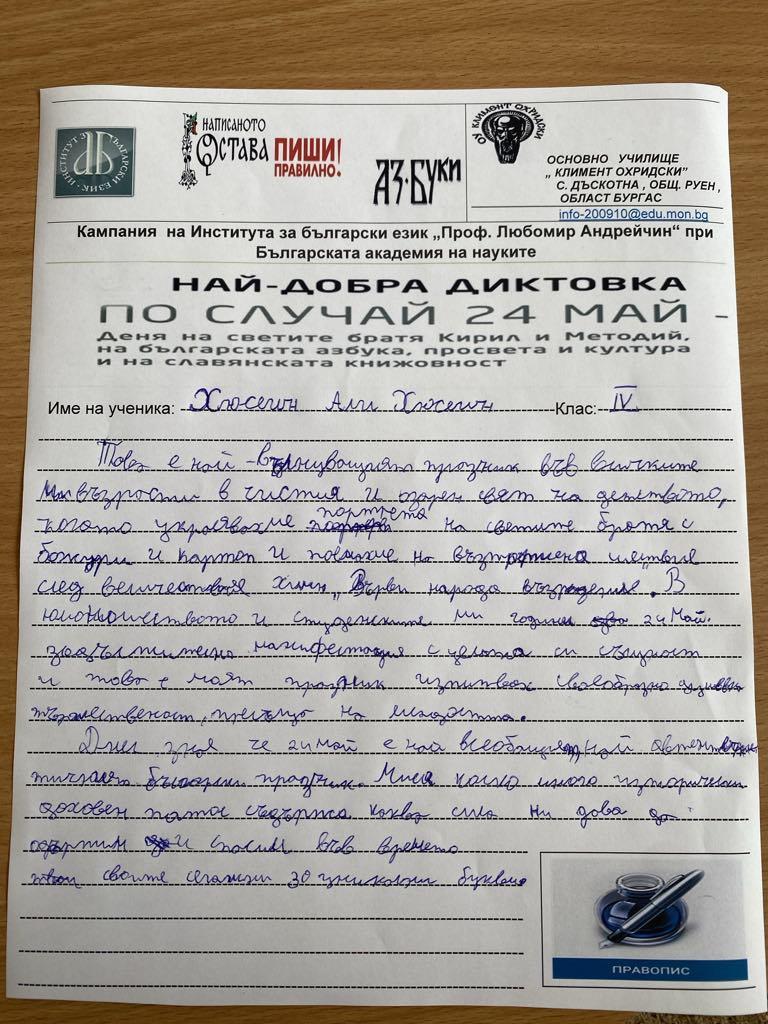 ИНСТИТУТ ЗА БЪЛГАРСКИ ЕЗИК
НАПИСАНОТО
ОСТАВА ПИШИ!
ПРАВИЛНО.
АЗ·БУКИ
ОУ КЛИМЕНТ ОХРИДСКИ
ОСНОВНО УЧИЛИЩЕ
„ КЛИМЕНТ ОХРИДСКИ"
С. ДЪСКОТНА , ОБЩ. РУЕН ,
ОБЛАСТ БУРГАС
info-200910@edu.mon.bg
Кампания на Института за български език „Проф. Любомир Андрейчин“ при
Българската академия на науките
НАЙ-ДОБРА ДИКТОВКА
ПО СЛУЧАЙ 24 МАЙ -
Деня на светите братя Кирил и Методий,
на българската азбука, просвета и култура
и на славянската книжовност
Име на ученика: Хюсеин Али Хюсеин Клас: IV
Това е най - празник във всичките
ми възрости в чистия и озарен свят на детството,
когато украсявахме портрета на светите братя с
божури и картон и на възторжена шествие
след химн „Върви народе възродени". В
юношеството и студенските ми години 24 Май.
задължителна манифестация с цялата си същност
и това е моят празник изпитвах своеобразно
тържественост, на младостта.
Днес зная че 24 май е най всеобщия, най
български празник. Мисля колко много
духовен патос съдържа каква сила ни дава да
и спосим във времето
своите сегашни 30 уникални букви
ПРАВОПИС